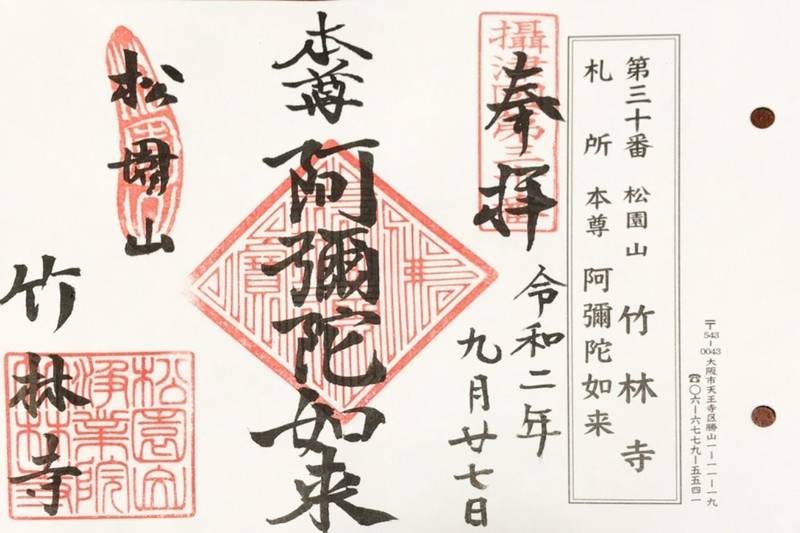 第三十番 松園山 竹林寺
札所 本尊 阿彌陀如来
〒543-0043 大阪市天王寺区勝山一-一一-一九
☎〇六-六七七九-五五四一
奉拝
令和二年
九月廿七日
本尊
阿彌陀如来
松園山
竹林寺
攝津國第三十番
松園山
浄業院
竹林寺